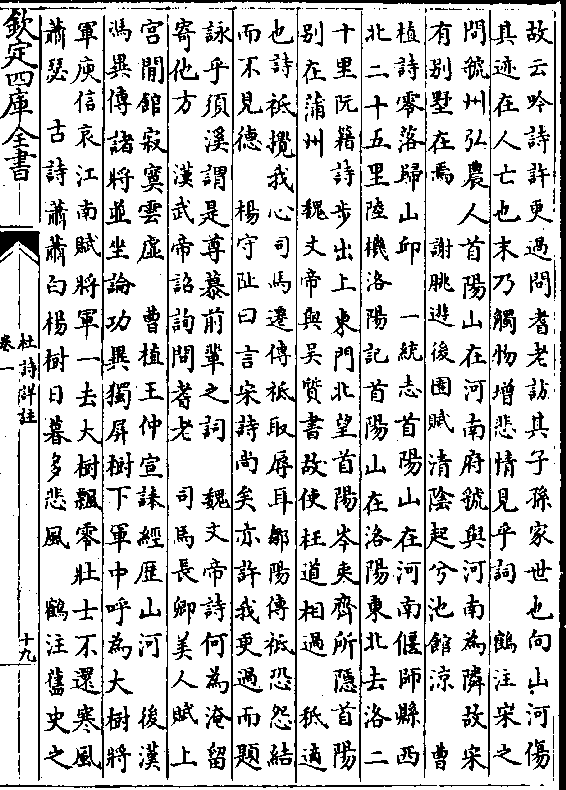 故云吟詩許更過問耆老訪其子孫家世也向山河傷
其迹在人亡也末乃觸物增悲情見乎詞　鶴注宋之
問虢州弘農人首陽山在河南府虢與河南為隣故宋
有別墅在焉　謝朓遊後園賦清陰起兮池館涼　曹
植詩零落歸山邱　一統志首陽山在河南偃師縣西
北二十五里陸機洛陽記首陽山在洛陽東北去洛二
十里阮籍詩步出上東門北望首陽岑夷齊所隱首陽
別在蒲州　魏文帝與吳質書故使枉道相過　秪適
也詩祇攪我心司馬遷傳祇取辱耳鄒陽傳祇恐怨結
而不見德　楊守阯曰言宋詩尚矣亦許我更過而題
詠乎須溪謂是尊慕前輩之詞　魏文帝詩何為淹留
寄他方　漢武帝詔詢問耆老　司馬長卿美人賦上
宮閒館寂寞雲虛　曹植王仲宣誄經歷山河　後漢
馮異傳諸將並坐論功異獨屏樹下軍中呼為大樹將
軍庾信哀江南賦將軍一去大樹飄零壯士不還寒風
蕭瑟　古詩蕭蕭白楊樹日暮多悲風　鶴注舊史之
欽定四庫全書
杜詩詳註
卷一
十九